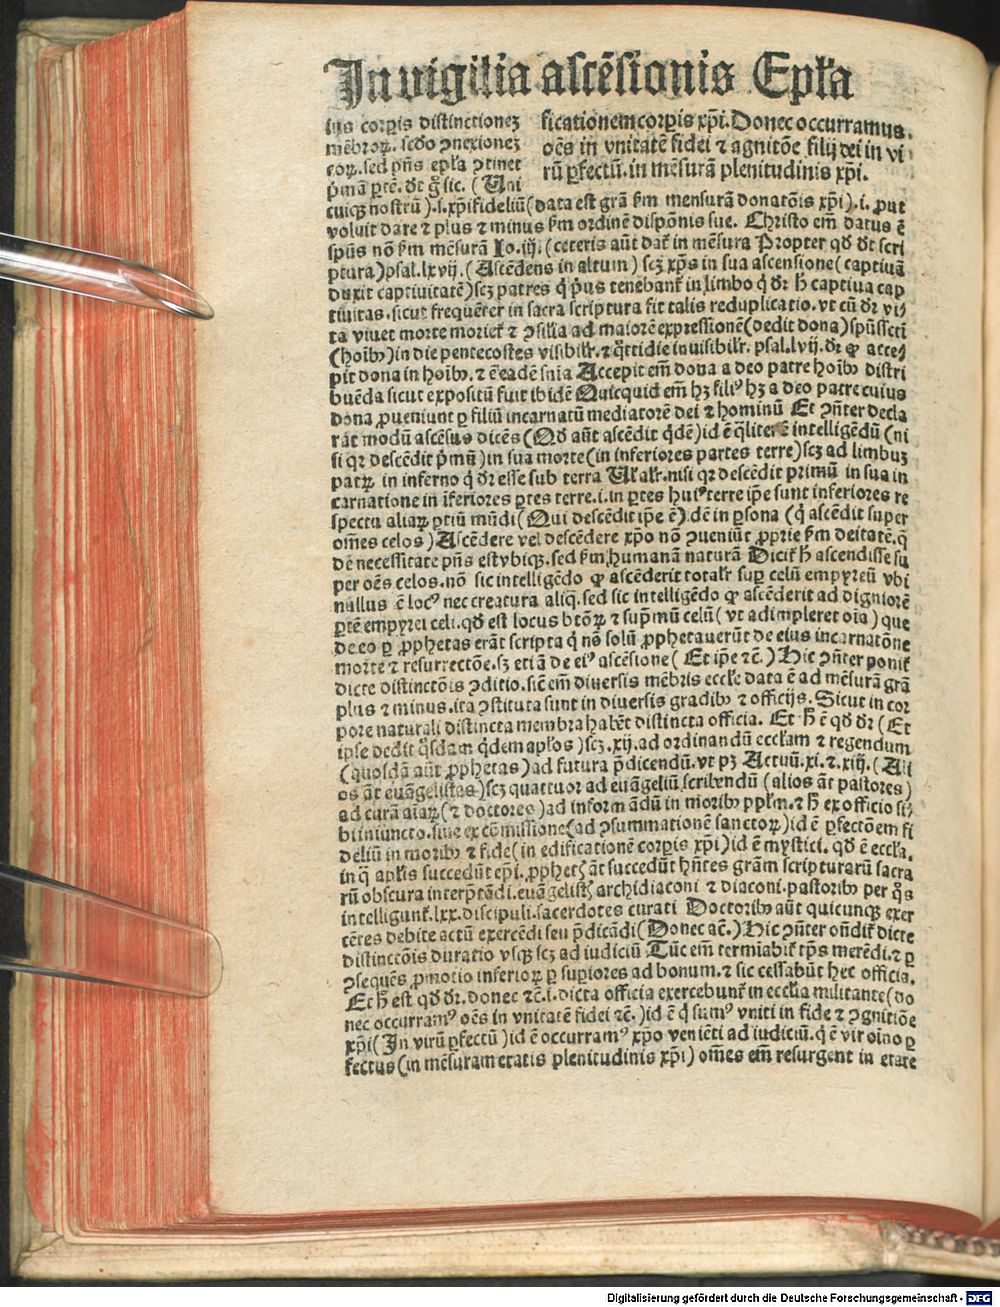 In vigilia ascēsionis Epl'a
ius corpis distinctionez
mēbroꝝ. secdo ꝯnexionez
eoꝝ. sed pn̄s epl'a ꝯtinet
p̄mā ꝑtē. dt̄ gͦ sic. (Uni
ficationem corpis xp̄i. Donec occurramus.
oēs in vnitatē fidei ⁊ agnitōe filij dei in vi
rū ꝑfectū. in mēsurā plenitudinis xp̄i.
cuiqꝫ nostrū).i.xp̄ifideliū(data est grā ẜm mensurā donatōis xp̄i).i. ꝓut
voluit dare ⁊ plus ⁊ minus ẜm ordinē dispōnis sue. Christo em̄ datus ē
spūs nō ẜm mēsurā Io.iij.(ceteris aūt dat̄ in mēsura Propter qd̄ dt̄ scri
ptura)psal.lxvij.(Ascēdens in altum) scꝫ xp̄s in sua ascensione(captiuā
duxit captiuitatē)scꝫ patres q̄ pͥus tenebant̄ in limbo q̄ dr̄ h̄ captiua cap
tiuitas.sicut frequēter in sacra scriptura fit talis reduplicatio.vt cū dr̄ vi⸗
ta viuet morte moriet̄ ⁊ ꝯsilia ad maiorē expressionē(dedit dona)spūssctī
(hoībꝰ)in die pentecostes visibilr̄.⁊ q̄ttidie inuisibilr̄. psal.lvij.dr̄ ꝙ acce⸗
pit dona in hoībꝰ.⁊ ē eadē snīa Accepit em̄ dona a deo patre hoībꝰ distri
buēda sicut expositū fuit ibidē Quicquid em̄ hꝫ filiꝰ hꝫ a deo patre cuius
dona ꝓueniunt ꝑ filiū incarnatū mediatorē dei ⁊ hominū Et ꝯn̄ter decla
rat modū ascēsus dicēs (Qd̄ aūt ascēdit qͥdē)id ē q̄liter ē intelligēdū (ni
si qꝛ descēdit pͥmū)in sua morte(in inferiores partes terre)scꝫ ad limbuꝫ
patꝝ in inferno q̄ dr̄ esse sub terra Ul' alr̄.nisi qꝛ descēdit primū in sua in
carnatione in īferiores ꝑtes terre.i.in ꝑtes huiꝰ terre ip̄e sunt inferiores re
spectu aliaꝝ ꝑtiū mūdi(Qui descēdit ip̄e ē) dē in ꝑsona (q̄ ascēdit super
om̄es celos)Ascēdere vel descēdere xp̄o nō ꝯueniūt ꝓprie ẜm deitatē.q̄
dē necessitate pn̄s est vbiqꝫ.sed ẜm humanā naturā Dicit̄ h̄ ascendisse su
per oēs celos.nō sic intelligēdo ꝙ ascēderit totalr̄ suꝑ celū empyreū vbi
nullus ē locꝰ nec creatura aliq̄.sed sic intelligēdo ꝙ ascēderit ad digniorē
ꝑtē empyrei celi.qd̄ est locus btōꝝ ⁊ supͥmū celū (vt adimpleret oīa) que
de eo ꝑ ꝓphetas erāt scripta q̄ nō solū ꝓphetauerūt de eius incarnatōne
morte ⁊ resurrectōe.sꝫ etiā de eiꝰ ascēsione( Et ip̄e ⁊c̄.) Hic ꝯn̄ter ponit̄
dicte distinctōis ꝯditio.sic̄ em̄ diuersis mēbris eccl'e data ē ad mēsurā grā
plus ⁊ minus.ita ꝯstituta sunt in diuersis gradibꝰ ⁊ officijs.Sicut in cor
pore naturali distincta membra habēt distincta officia. Et h̄ ē qd̄ dr̄ (Et
ipse dedit q̄sdam qͥdem apl'os)scꝫ.xij.ad ordinandū eccl'am ⁊ regendum
(quosdā aūt ꝓphetas)ad futura p̄dicendū.vt pꝫ Actuū.xi.⁊.xiij.(Ali
os āt euāgelistas)scꝫ quattuor ad euāgeliū scribendū (alios āt pastores)
ad curā aīaꝝ(⁊ doctores)ad informādū in moribꝰ ppl'm.⁊ h̄ ex officio si⸗
bi iniuncto.siue ex cōmissione(ad ꝯsummationē sanctoꝝ)id ē ꝑfectōem fi
deliū in moribꝰ ⁊ fide(in edificationē corpis xp̄i)id ē mystici. qd̄ ē eccl'a.
in q̄ apl'is succedūt ep̄i.ꝓphet̄ āt succedūt hn̄tes grām scripturarū sacra
rū obscura interp̄tādi.euāgelist̄ archidiaconi ⁊ diaconi.pastoribꝰ per q̄s
intelligunt̄.lxx.discipuli.sacerdotes curati Doctoribꝰ aūt quicunqꝫ exer
cētes debite actū exercēdi seu p̄dicādi(Donec ⁊c̄.)Hic ꝯn̄ter on̄dit̄ dicte
distinctōis duratio vsqꝫ scꝫ ad iudiciū Tūc em̄ termiabit̄ tp̄s merēdi.⁊ ꝑ
ꝯsequēs ꝓmotio inferioꝝ ꝑ supͥores ad bonum.⁊ sic cessabūt hec officia.
Et h̄ est qd̄ dr̄.donec ⁊c̄.i.dicta officia exercebunt̄ in eccl'ia militante(do
nec occurramꝰ oēs in vnitatē fidei ⁊c̄.)id ē q̄ sumꝰ vniti in fide ⁊ ꝯgnitiōe
xp̄i(In virū ꝑfectū)id ē occurramꝰ xp̄o veniēti ad iudiciū.q̄ ē vir oīno ꝑ
fectus(in mēsuram etatis plenitudinis xp̄i) om̄es em̄ resurgent in etate
Digitalisierung gefördert durch die Deutsche Forschungsgemeinschaft - DFG